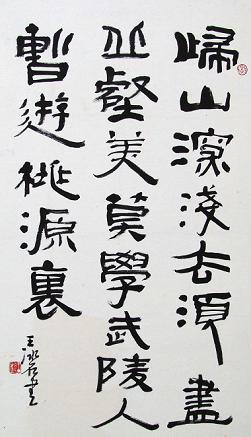 歸山深淺去須盡
丘壑美莫學武陵人
暫遊桃源裏